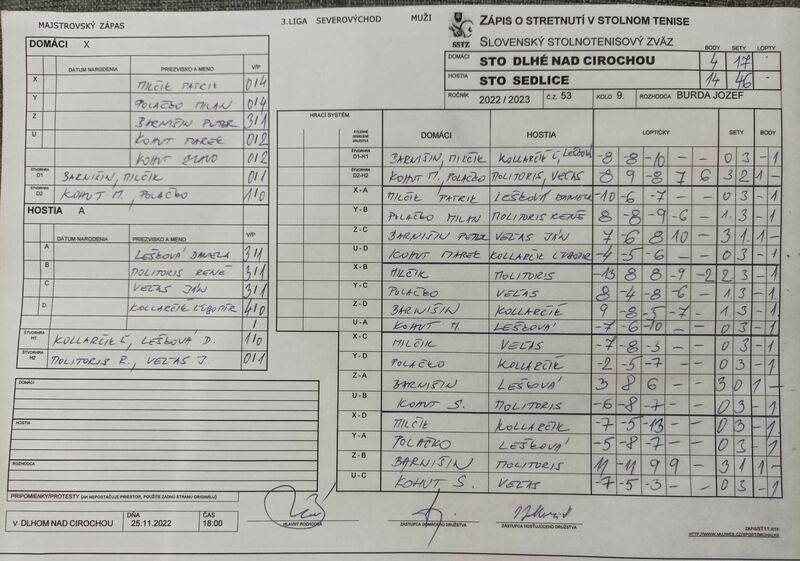 MAJSTROVSKÝ ZÁPAS
3.LIGA SEVEROVÝCHOD MUŽI
ZÁPIS O STRETNUTÍ V STOLNOM TENISE
SSTZ
SLOVENSKÝ STOLNOTENISOVÝ ZVÄZ
BODY SETY LOPTY
DOMÁCI STO DLHÉ NAD CIROCHOU 4 17 -
HOSTIA STO SEDLICE 14 46 -
ROČNÍK 2022 / 2023 č.z. 53 KOLO 9. ROZHODCA BURDA JOZEF
DOMÁCI X
DÁTUM NARODENIA PRIEZVISKO A MENO V/P
X MILČIK PATRIK 0/4
Y POLAČKO MILAN 0/4
Z BARNIŠIN PETER 3/1
U KOHUT MAREK 0/2
KOHUT 0/2
ŠTVORHRA D1 BARNIŠIN, MILČIK 0/1
ŠTVORHRA D2 KOHUT M., POLAČKO 1/0
HOSTIA A
DÁTUM NARODENIA PRIEZVISKO A MENO V/P
A LEŠKOVÁ DANIELA 3/1
B MOLITORIS RENÉ 3/1
C VEĽAS JÁN 3/1
D KOLLARČIK ĽUBOMÍR 4/0
/
ŠTVORHRA H1 KOLLARČIK Ľ, LEŠKOVÁ D. 1/0
ŠTVORHRA H2 MOLITORIS R., VEĽAS J. 0/1
HRACÍ SYSTÉM DOMÁCI HOSTIA LOPTIČKY SETY BODY
ŠTVORHRA D1-H1 BARNIŠIN, MILČIK KOLLARČIK Ľ, LEŠKOVÁ -8 -8 -10 - - 0 3 - 1
ŠTVORHRA D2-H2 KOHUT M., POLAČKO MOLITORIS, VEĽAS 8 9 -8 7 6 3 2 1 -
X-A MILČIK PATRIK LEŠKOVÁ DANIELA -10 -6 -7 - - 0 3 - 1
Y-B POLAČKO MILAN MOLITORIS RENÉ 8 -8 -9 -6 - 1 3 - 1
Z-C BARNIŠIN PETER VEĽAS JÁN 7 -6 8 10 - 3 1 1 -
U-D KOHUT MAREK KOLLARČIK ĽUBOMIR -4 -5 -6 - - 0 3 - 1
X-B MILČIK MOLITORIS -13 8 8 -9 -2 2 3 - 1
Y-C POLAČKO VEĽAS 8 -4 -8 -6 - 1 3 - 1
Z-D BARNIŠIN KOLLARČIK 9 -8 -5 -7 - 1 3 - 1
U-A KOHUT M. LEŠKOVÁ -7 -6 -10 - - 0 3 - 1
X-C MILČIK VEĽAS -7 -8 -3 - - 0 3 - 1
Y-D POLAČKO KOLLARČIK -2 -5 -7 - - 0 3 - 1
Z-A BARNIŠIN LEŠKOVÁ 3 8 6 - - 3 0 1 -
U-B KOHUT S. MOLITORIS -6 -8 -7 - - 0 3 - 1
X-D MILČIK KOLLARČIK -7 -5 -13 - - 0 3 - 1
Y-A POLAČKO LEŠKOVÁ -5 -8 -7 - - 0 3 - 1
Z-B BARNIŠIN MOLITORIS 11 -11 9 9 - 3 1 1 -
U-C KOHUT S. VEĽAS -7 -5 -3 - - 0 3 - 1
DOMÁCI
HOSTIA
ROZHODCA
PRIPOMIENKY/PROTESTY (AK NEPOSTAČUJE PRIESTOR, POUŽITE ZADNÚ STRANU ORIGINÁLU)
V DLHOM NAD CIROCHOU DŇA 25.11.2022 ČAS 18:00
HLAVNÝ ROZHODCA
ZÁSTUPCA DOMÁCEHO DRUŽSTVA
ZÁSTUPCA HOSŤUJÚCEHO DRUŽSTVA
ZAPISST11.RTF
HTTP://WWW.MUJWEB.CZ/SPORT/MICHALKA